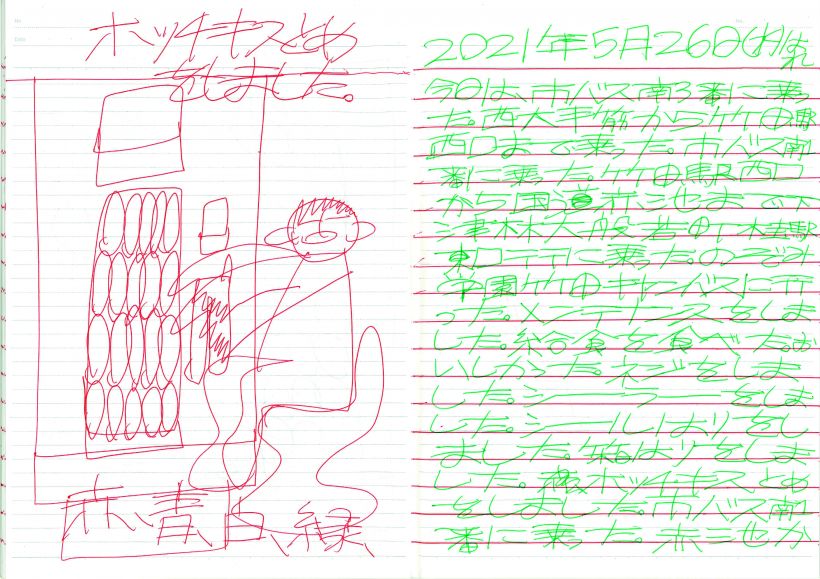 ホッチキスとめ
をしました。
赤青白緑
2021年5月26日(水)晴れ
今日は、市バス南3番に乗っ
た。西大手筋から竹田駅
西口まで乗った。市バス南
番に乗った。竹田駅西口
から国道赤池まで
東口行に乗った。のぞみ
学園竹田キャンバスに行
った。メンテナンスをしま
した。給食を食べた。お
いしかった。ネジをしま
した。シーラーをしま
した。シールはりをし
ました。箱はりをしま
した。ホッチキスとめ
をしました。市バス南
番に乗った。赤池か